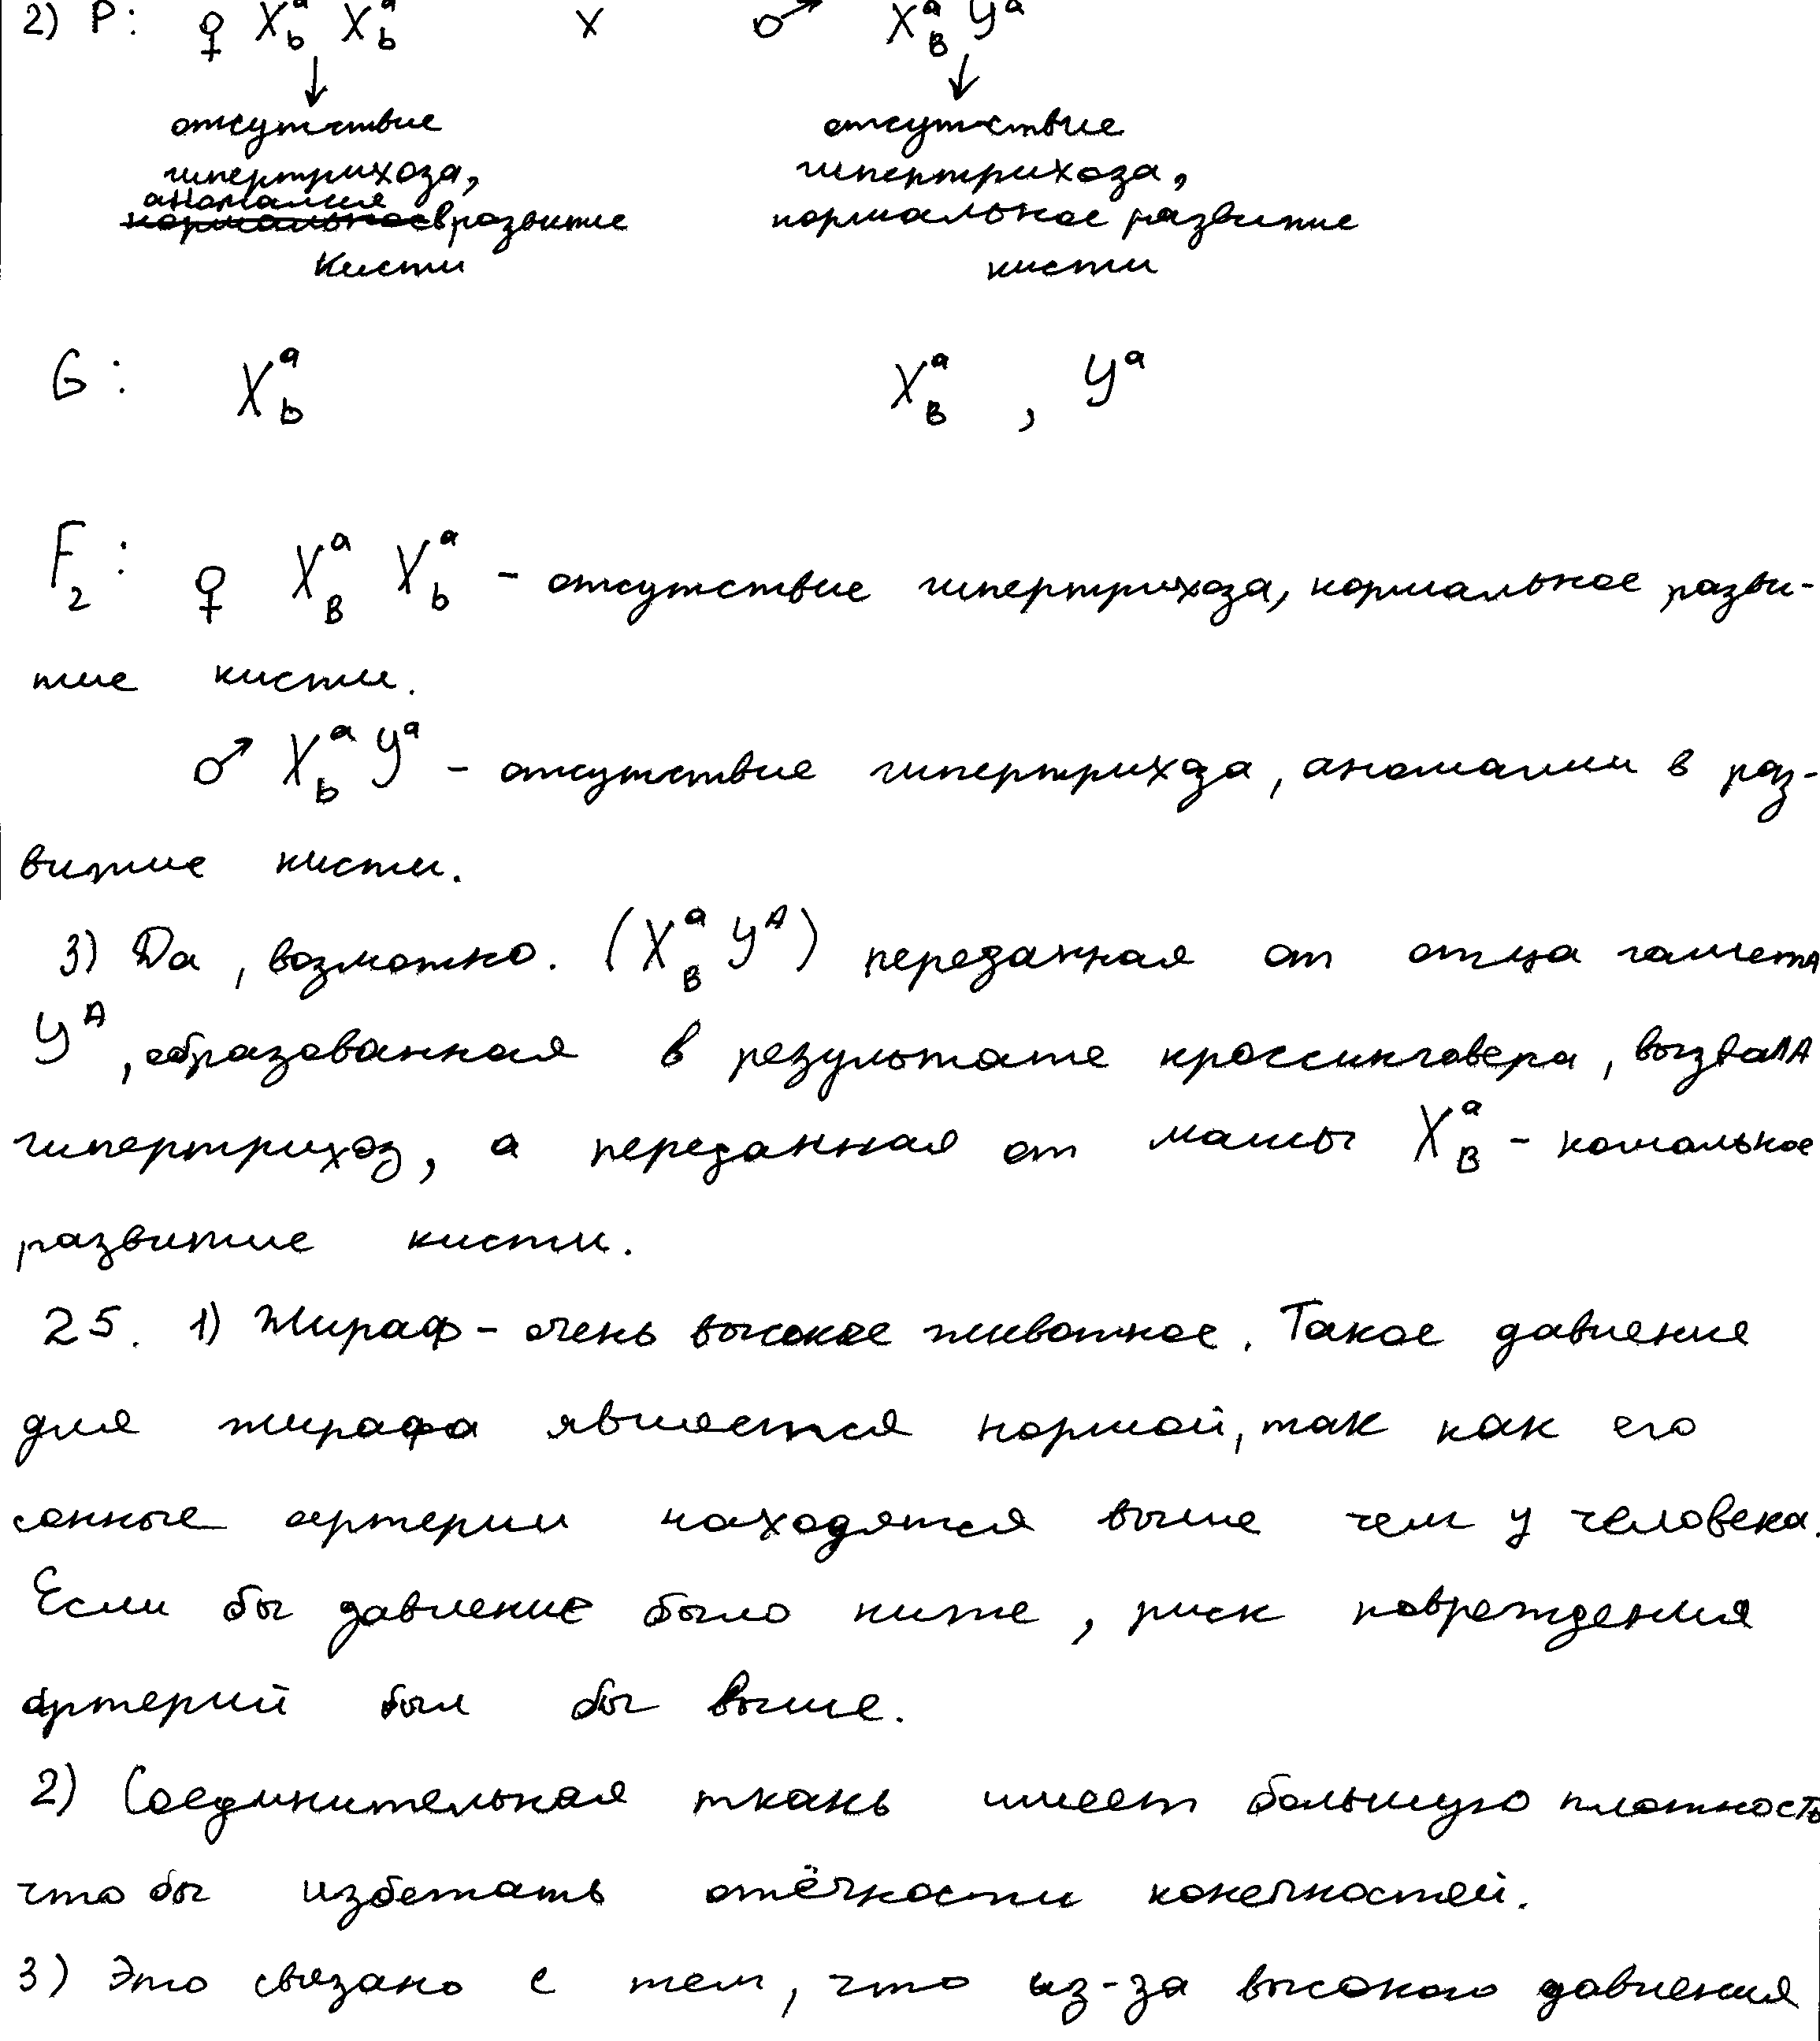 2) P: ♀ X^a_b X^a_b x ♂ X^a_B Y^a
↓ ↓
отсутствие отсутствие
гипертрихоза, гипертрихоза,
аномалия
нормальное в развитие нормальное развитие
кисти кисти
G: X^a_b X^a_B , Y^a
F2: ♀ X^a_B X^a_b - отсутствие гипертрихоза, нормальное разви-
тие кисти.
♂ X^a_b Y^a - отсутствие гипертрихоза, аномалии в раз-
витие кисти.
3) Да, возможно. (X^a_B Y^A) переданная от отца гамета
Y^A, образованная в результате кроссинговера, вызвала
гипертрихоз, а переданная от мамы X^a_B - номальное
развитие кисти.
25. 1) Жираф - очень высокое животное. Такое давление
для жирафа является нормой, так как его
сонные артерии находятся выше чем у человека.
Если бы давление было ниже, риск повреждения
артерий был бы выше.
2) Соединительная ткань имеет большую плотность
что бы избежать отёчности конечностей.
3) Это связано с тем, что из-за высокого давления